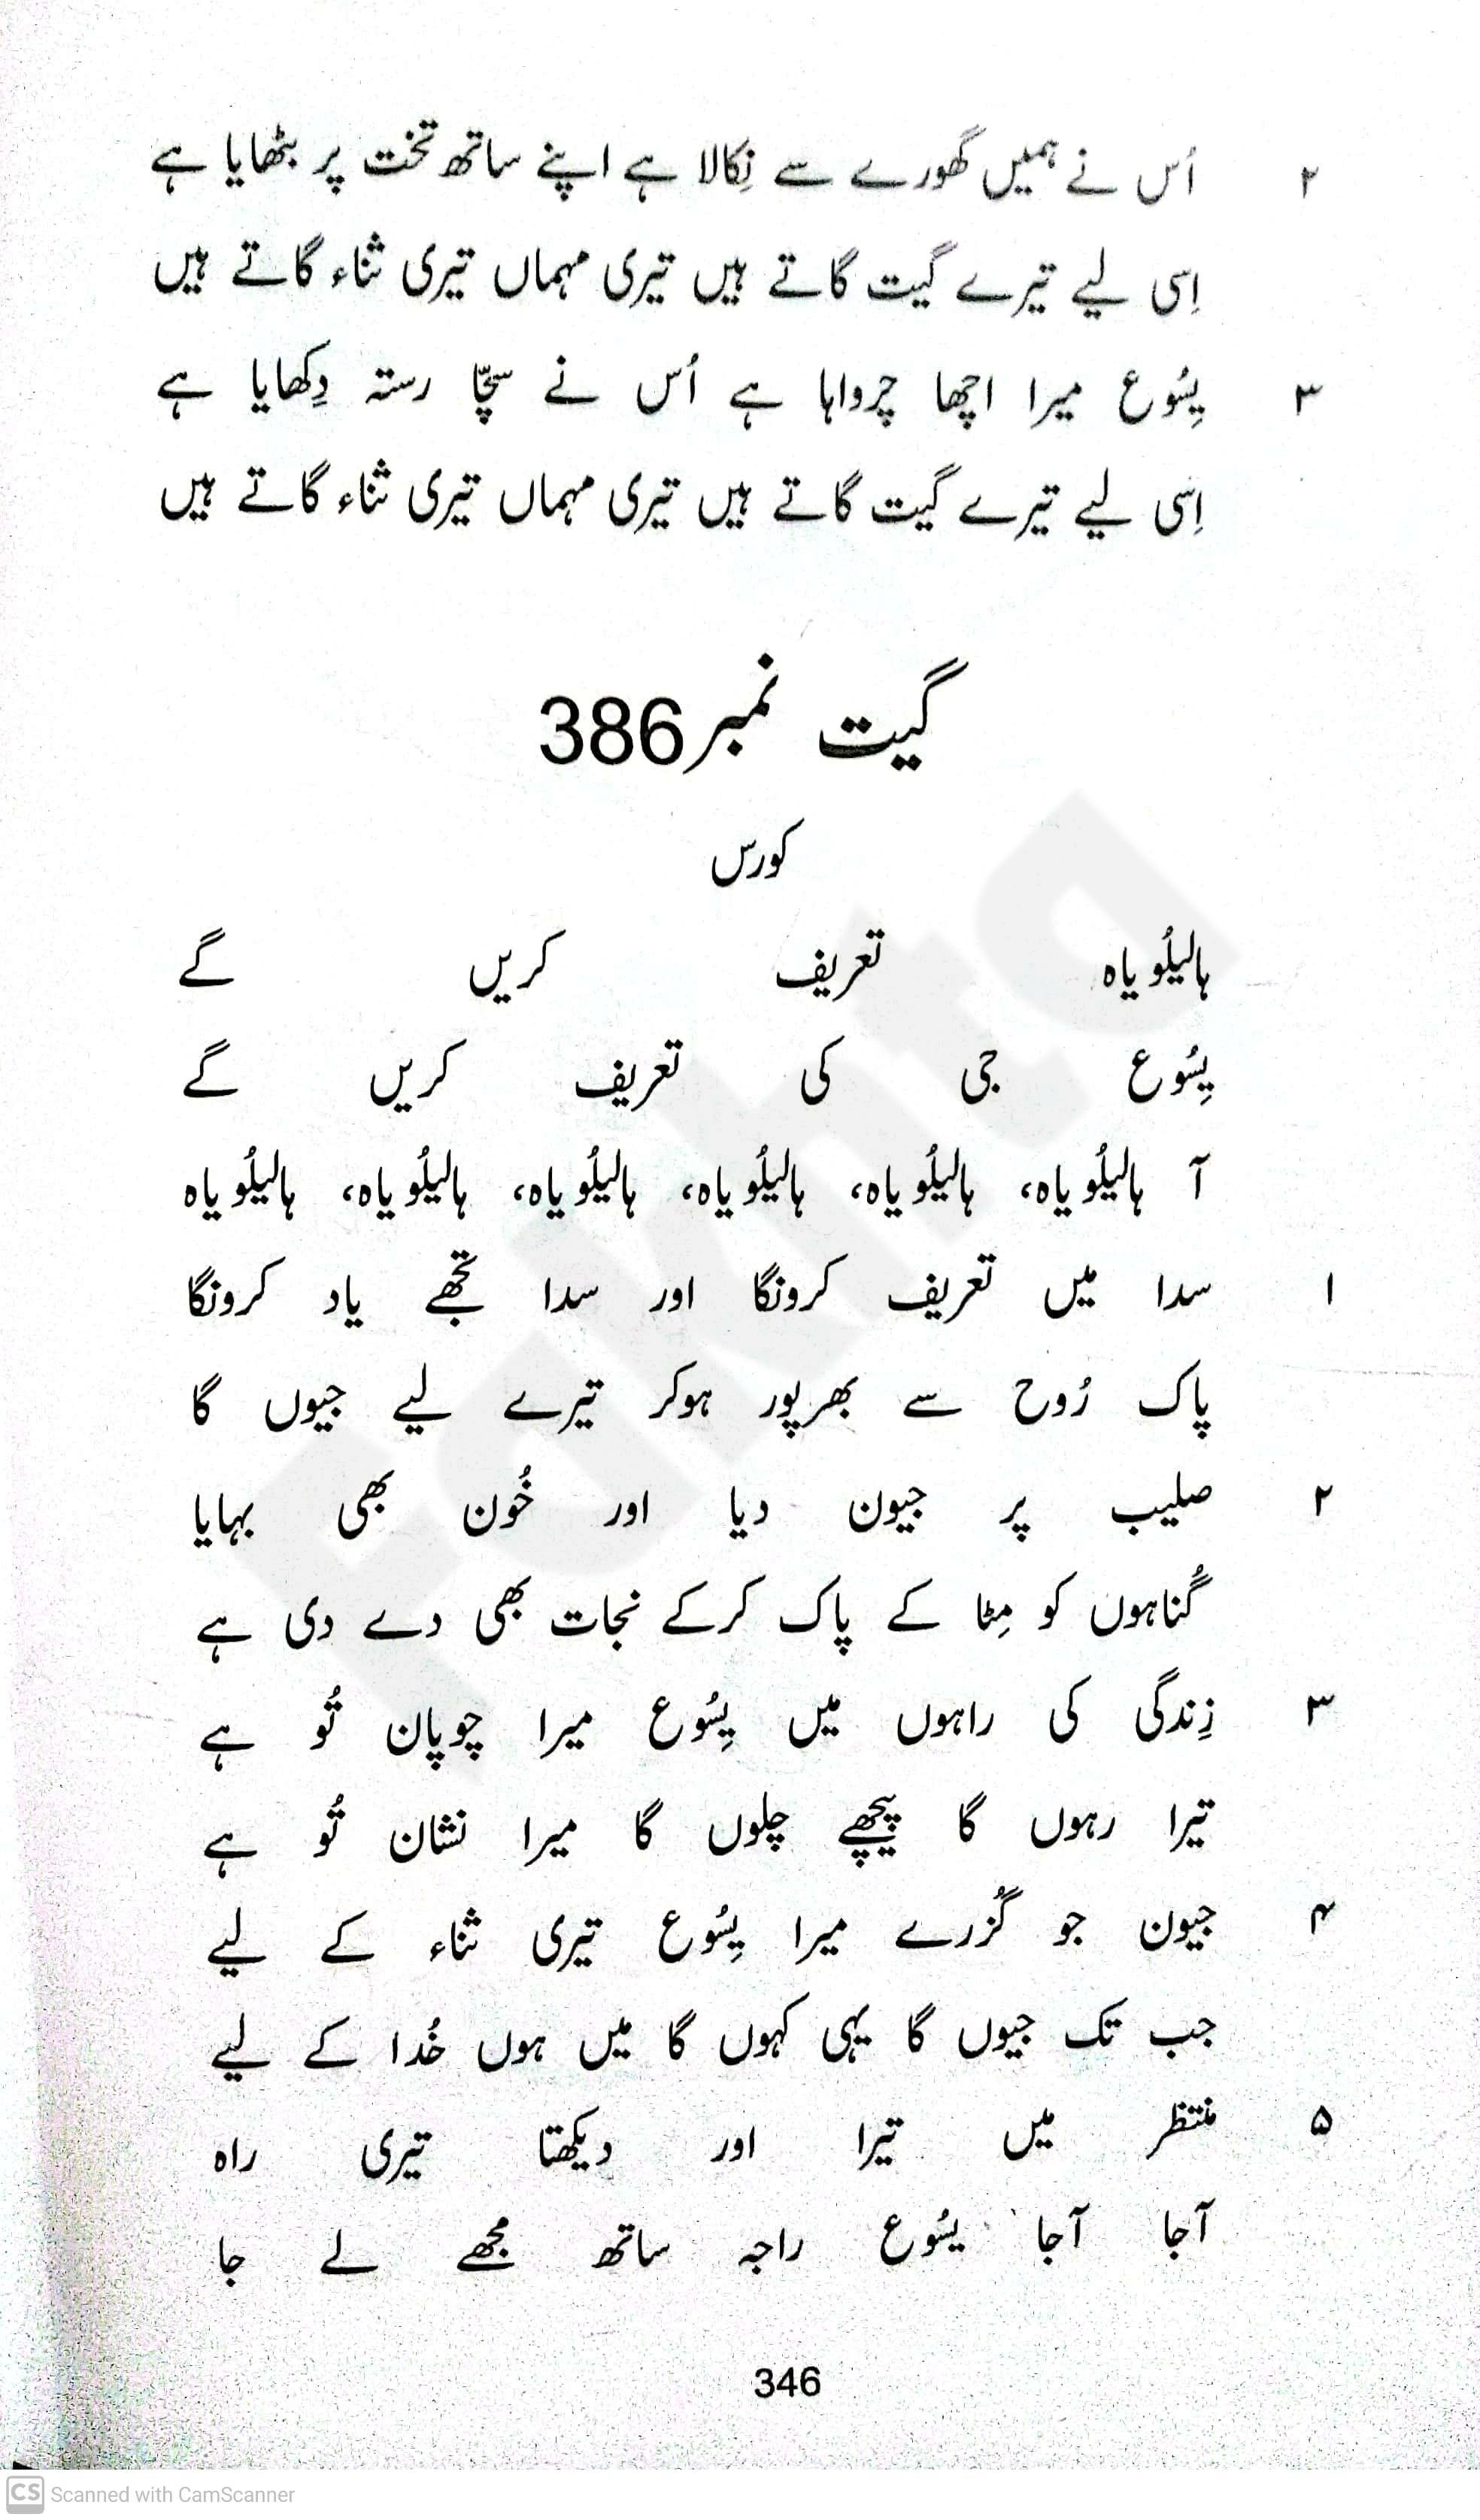 ۲ اُس نے ہمیں گھورے سے نِکالا ہے اپنے ساتھ تخت پر بٹھایا ہے
اِسی لیے تیرے گیت گاتے ہیں تیری مہماں تیری ثناء گاتے ہیں
۳ یِسُوع میرا اچھا چرواہا ہے اُس نے سچّا رستہ دِکھایا ہے
اِسی لیے تیرے گیت گاتے ہیں تیری مہماں تیری ثناء گاتے ہیں
گیت نمبر386
کورس
ہالیلُویاہ تعریف کریں گے
یِسُوع جی کی تعریف کریں گے
آ ہالیلُویاہ، ہالیلُویاہ، ہالیلُویاہ، ہالیلُویاہ، ہالیلُویاہ، ہالیلُویاہ
۱ سدا میں تعریف کرونگا اور سدا تجھے یاد کرونگا
پاک رُوح سے بھرپور ہوکر تیرے لیے جیوں گا
۲ صلیب پر جیون دیا اور خُون بھی بہایا
گُناہوں کو مِٹا کے پاک کرکے نجات بھی دے دی ہے
۳ زِندگی کی راہوں میں یِسُوع میرا چوپان تُو ہے
تیرا رہوں گا پیچھے چلوں گا میرا نشان تُو ہے
۴ جیون جو گُزرے میرا یِسُوع تیری ثناء کے لیے
جب تک جیوں گا یہی کہوں گا میں ہوں خُدا کے لیے
۵ منتظر میں تیرا اور دیکھتا تیری راہ
آجا آجا یسُوع راجہ ساتھ مجھے لے جا
346
Fakhta
CS Scanned with CamScanner